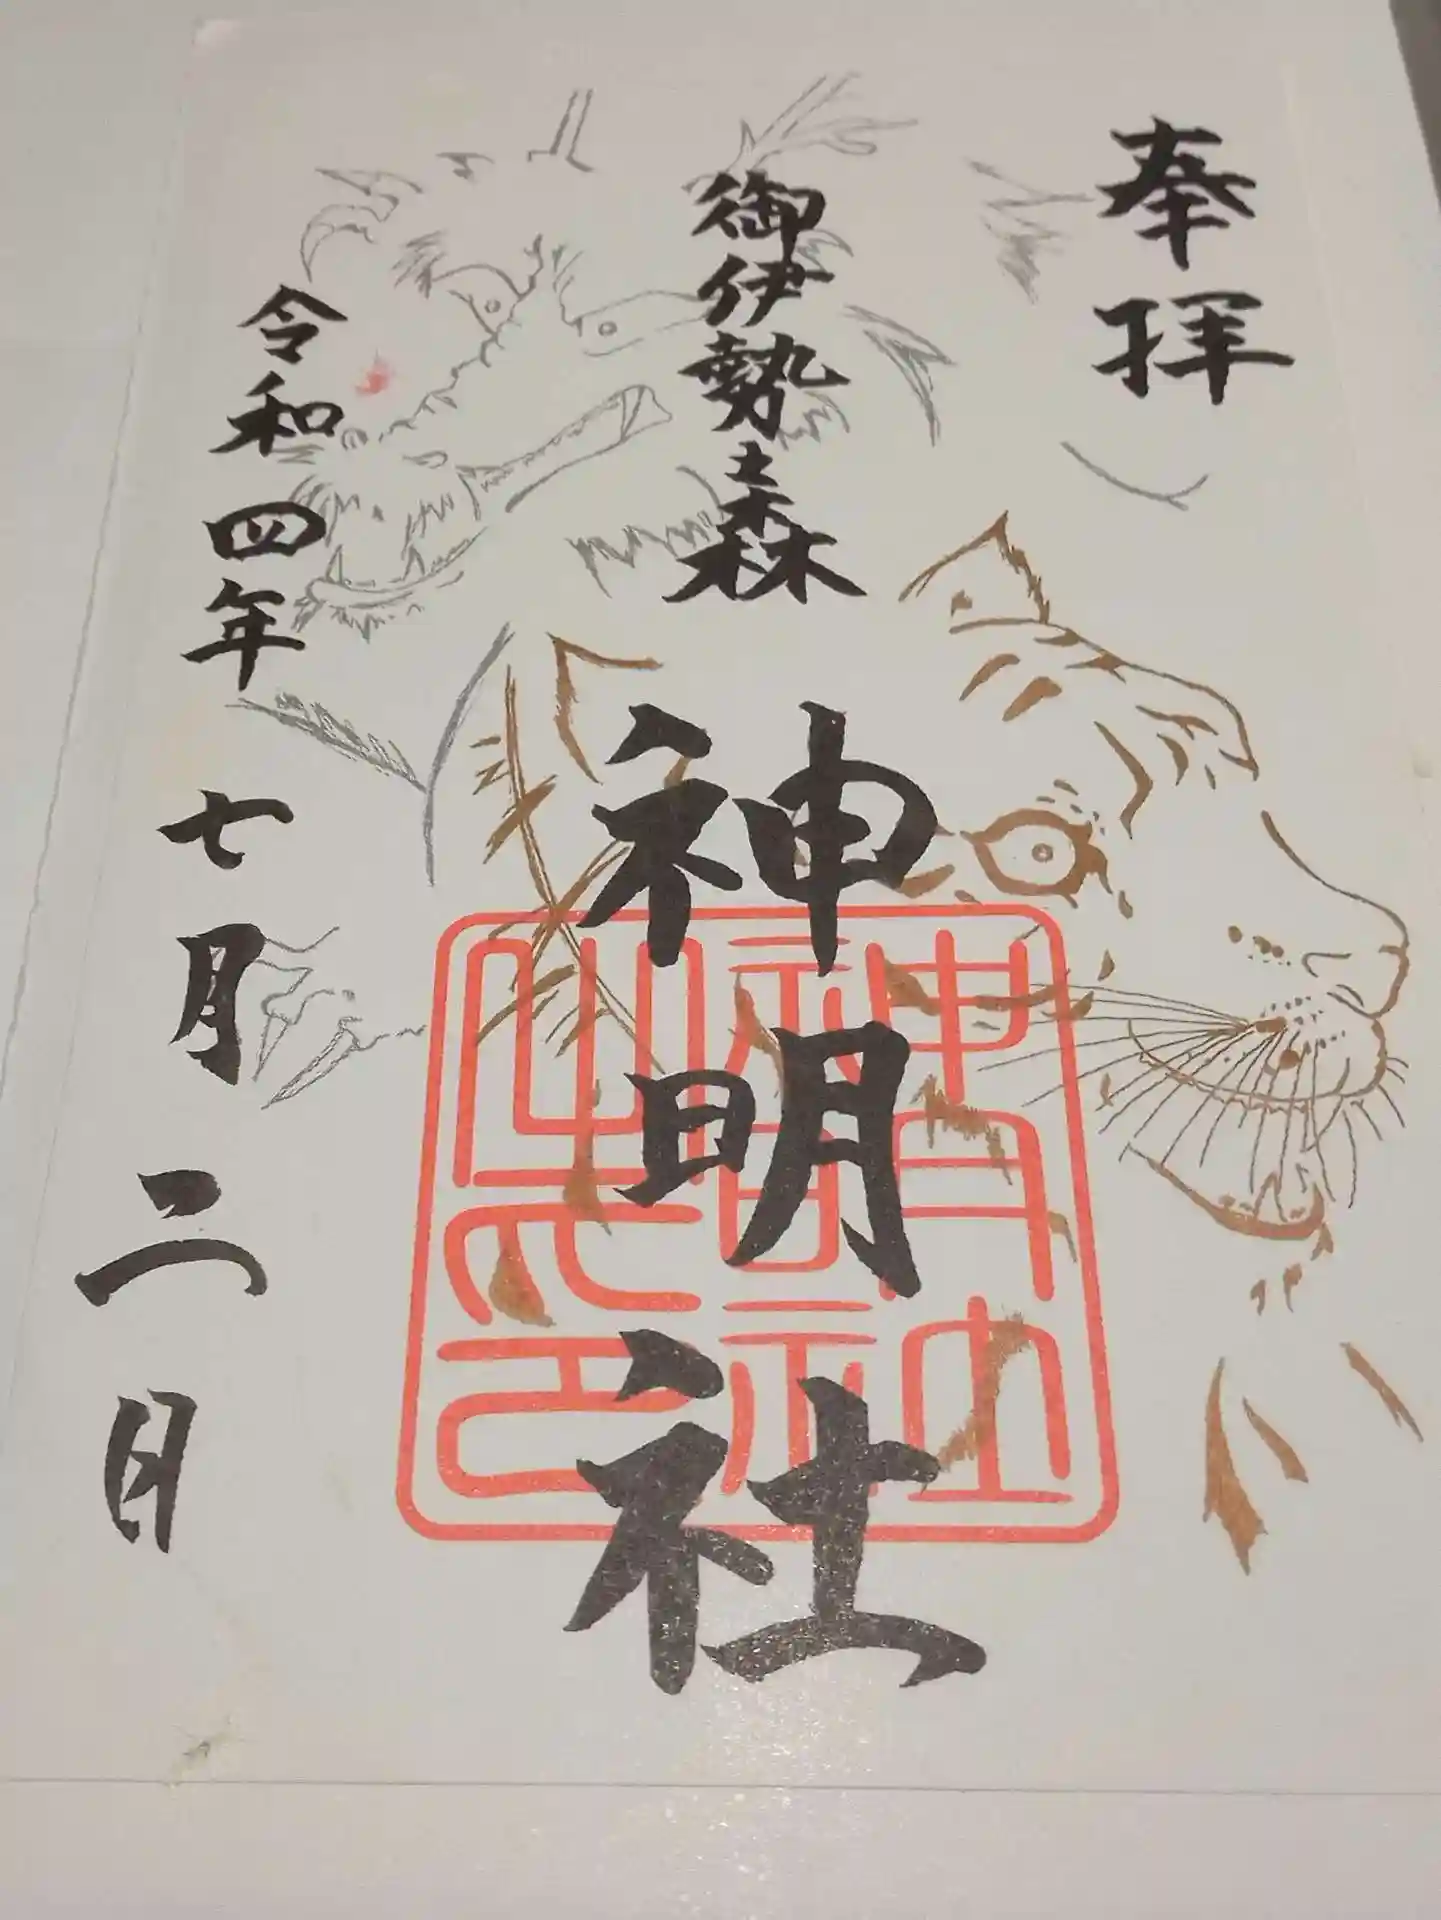 奉拝
御伊勢之森
神明社
令和四年七月二日
神明社